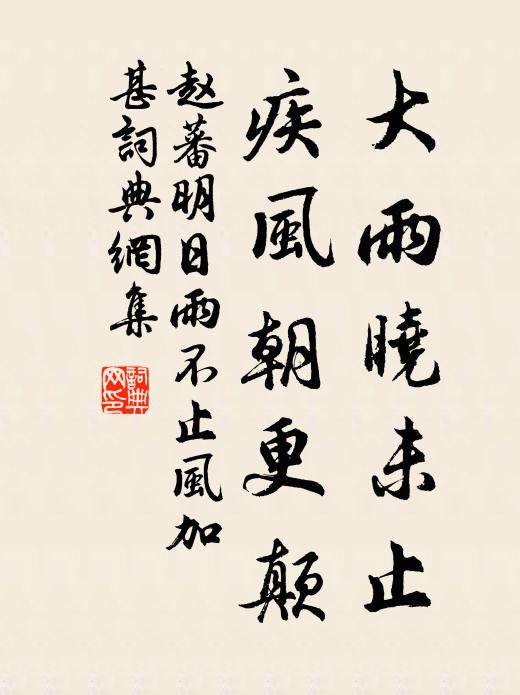 大雨曉未止
疾風朝更顛
赵蕃明日雨不止風加
甚詞典網集
詞典
网印